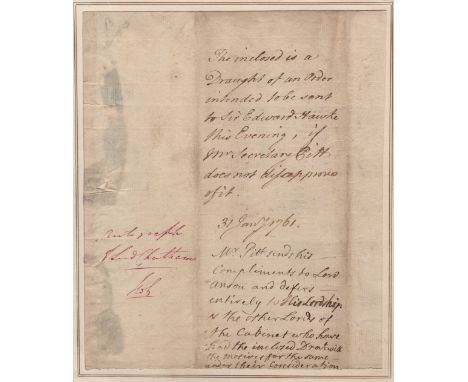 The inclosed is a
Draught of an Order
intended to be sent
to Sir Edward Hawke
this Evening, if
Mr Secretary Pitt
does not disapprove
of it.
31 Jany 1761.
Mr. Pitt sends his
compliments to Lord
Anson and defers
entirely to His Lordship
& the other Lords of
the Cabinet who have
had the inclosed Draught
the motives for the same
under their Consideration
Autograph
of Ld Chatham